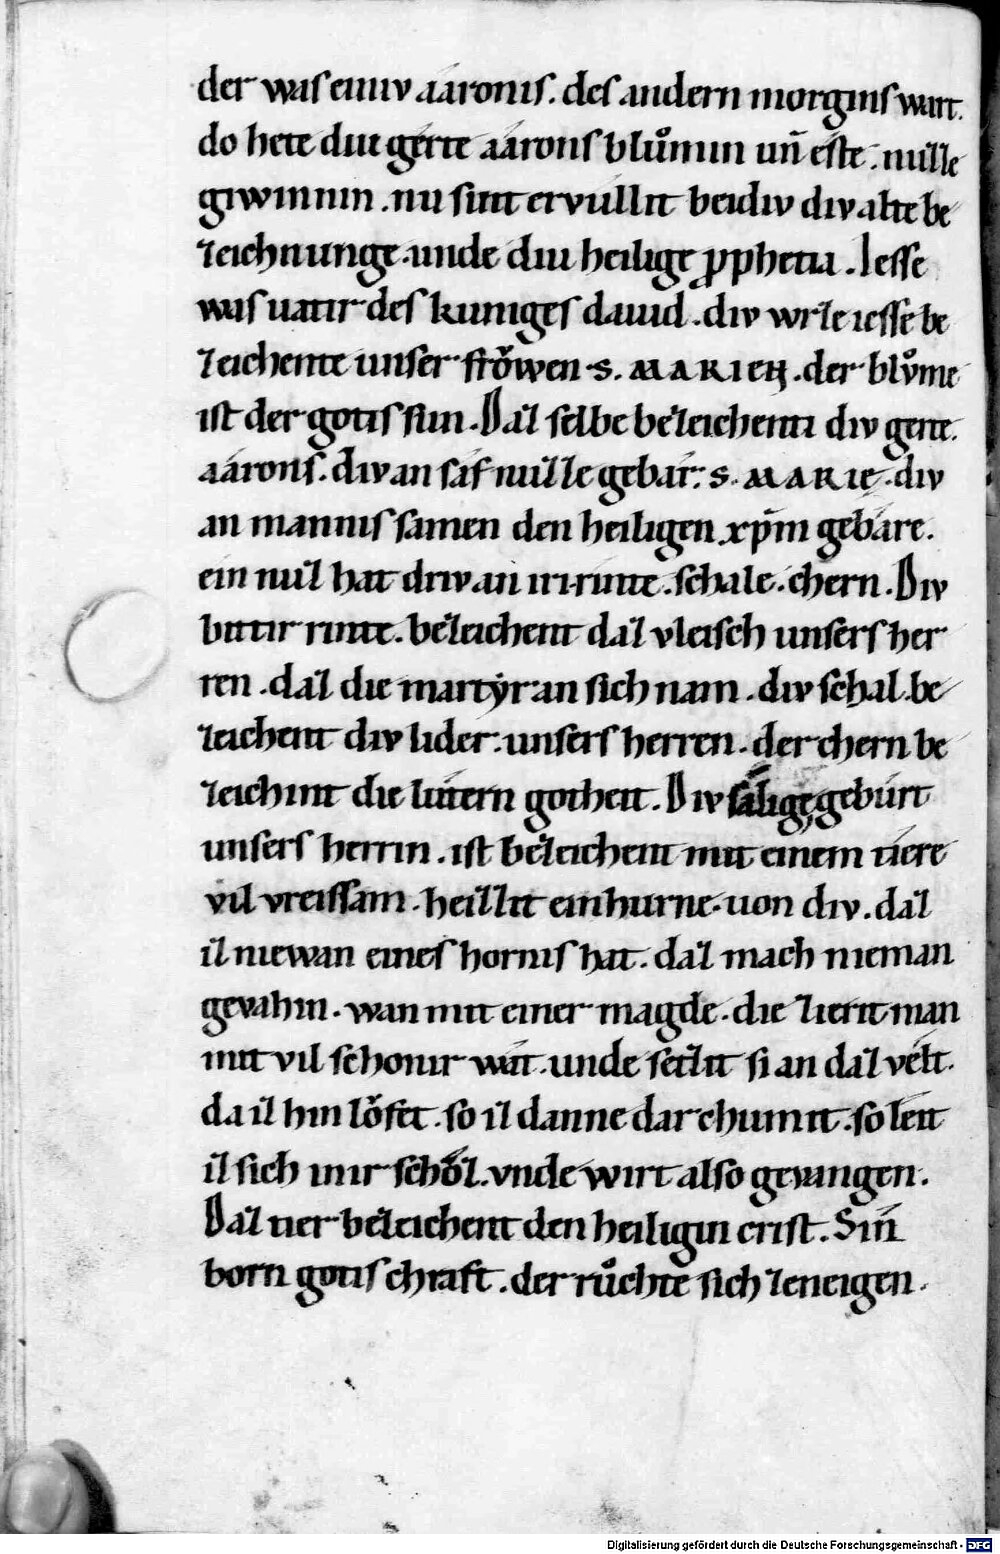 der was einiv aaronis. des andern morgins wart.
do hete diu gerte aârons blůmin uñ este. nuzze
giwinnin. nu sint ervullit beidiv div alte be
zeichnunge. unde diu heilige ꝓphetia. Iesse
was uatir des kuniges dauid. div wrze iesse be
zeichente unser frǒwen. S. MARIEN. der blůme
ist der gotis sun. Daz selbe bezeichenti div gerte.
aârons. div an saf nuzze gebar. S. MARIE. div
an mannis samen den heiligen xp̄m gebâre.
ein nuz hat driv an ir. rinte. schale. chern. Div
bittir rinte. bezeichent daz vleisch unsers her
ren. daz die martyr an sich nam. div schal. be
zeichent div lider. unsers herren. der chern be
zeichint die lûtern gotheit. Div sâlige geburt
unsers herrin. ist bezeichent mit einem tiere
vil vreissam. heizzit einhurne. uon div. daz
iz niewan eines hornis hat. daz mach nieman
gevahin. wan mit einer magde. die zierit man
mit vil schonir wât. unde setzit si an daz velt.
da iz hin lǒfet. so iz danne dar chumit. so leit
iz sich inir schǒz. vnde wirt also gevangen.
Daz tier bezeichent den heiligin crist. Sin
born gotis chraft. der růchte sich zeneigen.
Digitalisierung gefördert durch die Deutsche Forschungsgemeinschaft - DFG